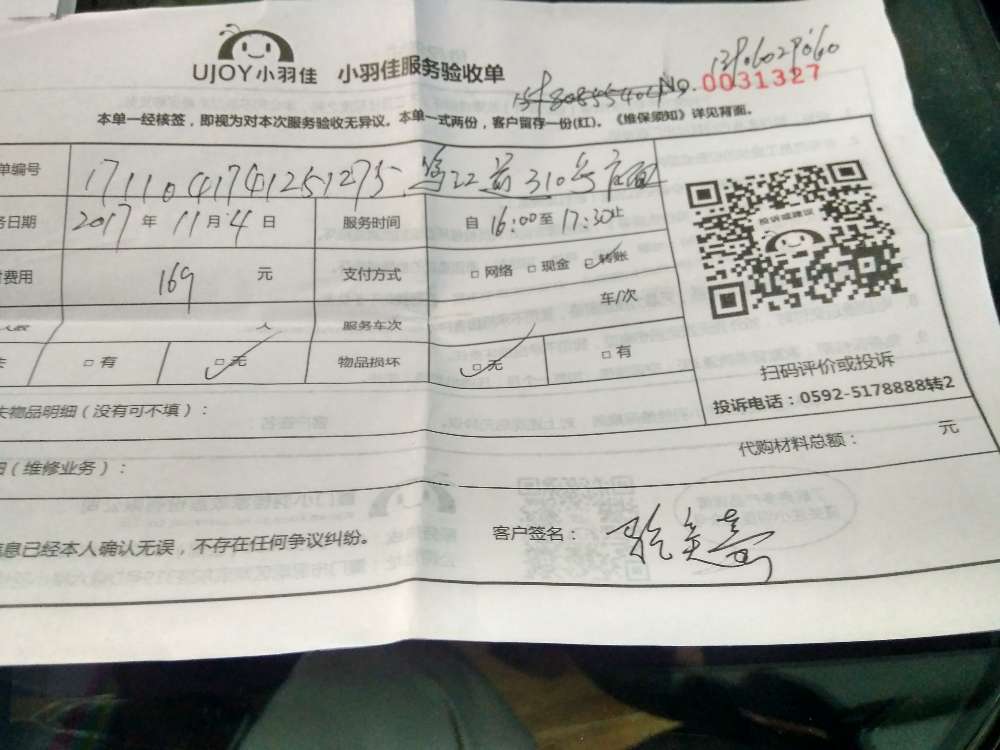 UJOY小羽佳 小羽佳服务验收单 No.0031327
13906029060
本单一经核签，即视为对本次服务验收无异议。本单一式两份，客户留存一份(红)。《维保须知》详见背面。
单编号 171104174125127 310号店面
务日期 2017 年 11 月 4 日 服务时间 自 16:00 至 17:30 止
费用 169 元 支付方式 □ 网络 □ 现金 □ 转账
人 服务车次 车/次
□ 有 □ 无 物品损坏 □ 无 □ 有
投诉或建议
扫码评价或投诉
投诉电话：0592-5178888转2
失物品明细（没有可不填）：
代购材料总额： 元
（维修业务）：
信息已经本人确认无误，不存在任何争议纠纷。
客户签名：